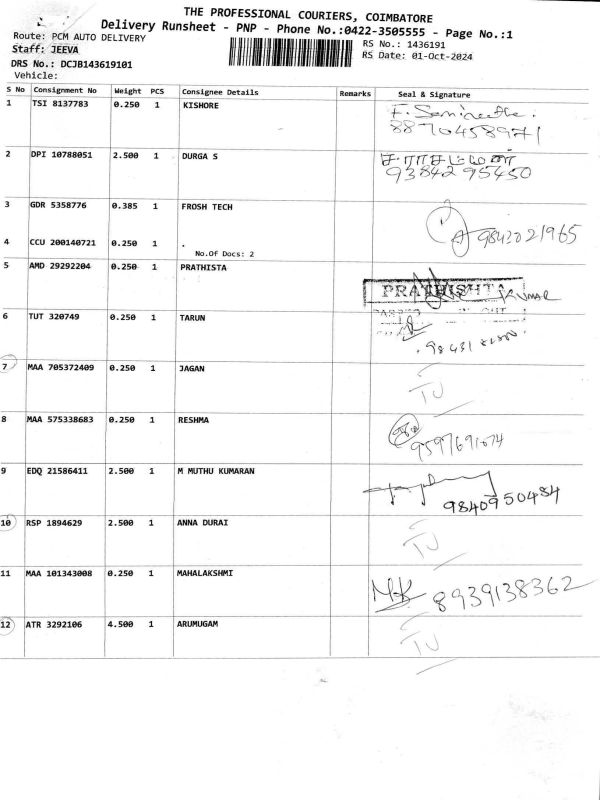 THE PROFESSIONAL COURIERS, COIMBATORE
Delivery Runsheet - PNP - Phone No.:0422-3505555 - Page No.:1
Route: PCM AUTO DELIVERY
RS No.: 1436191
Staff: JEEVA
RS Date: 01-Oct-2024
DRS No.: DCJB143619101
Vehicle:
S No Consignment No Weight PCS Consignee Details Remarks Seal & Signature
1 TSI 8137783 0.250 1 KISHORE
8870458971
2 DPI 10788051 2.500 1 DURGA S
9384295450
3 GDR 5358776 0.385 1 FROSH TECH
9843021965
4 CCU 200140721 0.250 1 .
No.Of Docs: 2
5 AMD 29292204 0.250 1 PRATHISTA
PRATHISHTA
6 TUT 320749 0.250 1 TARUN
7 MAA 705372409 0.250 1 JAGAN
TJ
8 MAA 575338683 0.250 1 RESHMA
9 EDQ 21586411 2.500 1 M MUTHU KUMARAN
9840950484
10 RSP 1894629 2.500 1 ANNA DURAI
TJ
11 MAA 101343008 0.250 1 MAHALAKSHMI
M.K 8939138362
12 ATR 3292106 4.500 1 ARUMUGAM
TJ